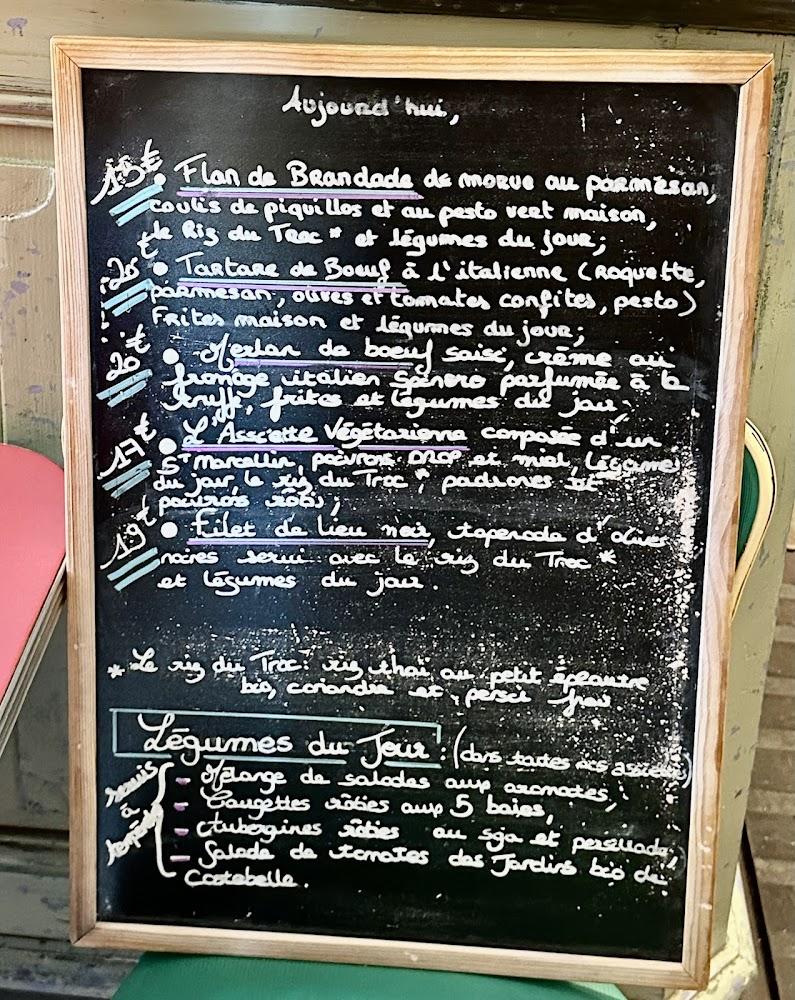 Aujourd'hui,
15€ • Flan de Brandade de morue au parmesan,
coulis de piquillos et au pesto vert maison,
le Riz du Troc * et légumes du jour;
20€ • Tartare de Boeuf à l'italienne (Roquette,
parmesan, olives et tomates confites, pesto)
Frites maison et légumes du jour;
20€ • Merlan de boeuf saisi, crème au
fromage italien parfumée à la
truff, frites et légumes du jour;
17€ • L'Assiette Végétarienne composée d'un
St Marcellin, poivrons DROP et miel, légumes
du jour le riz du Troc *, padrones et
poivrons rôtis;
19€ • Filet de lieu noir, tapenade d'olives
noires servi avec le riz du Troc *
et légumes du jour.
* Le riz du Troc: riz thaï au petit épeautre
bio, coriandre et persil frais
Légumes du Jour : (dans toutes nos assiettes)
servis
à
- Mélange de salades aux aromates,
- Courgettes rôties aux 5 baies,
- Aubergines rôties au soja et persillade,
- Salade de tomates des Jardins bio de
Costebelle.